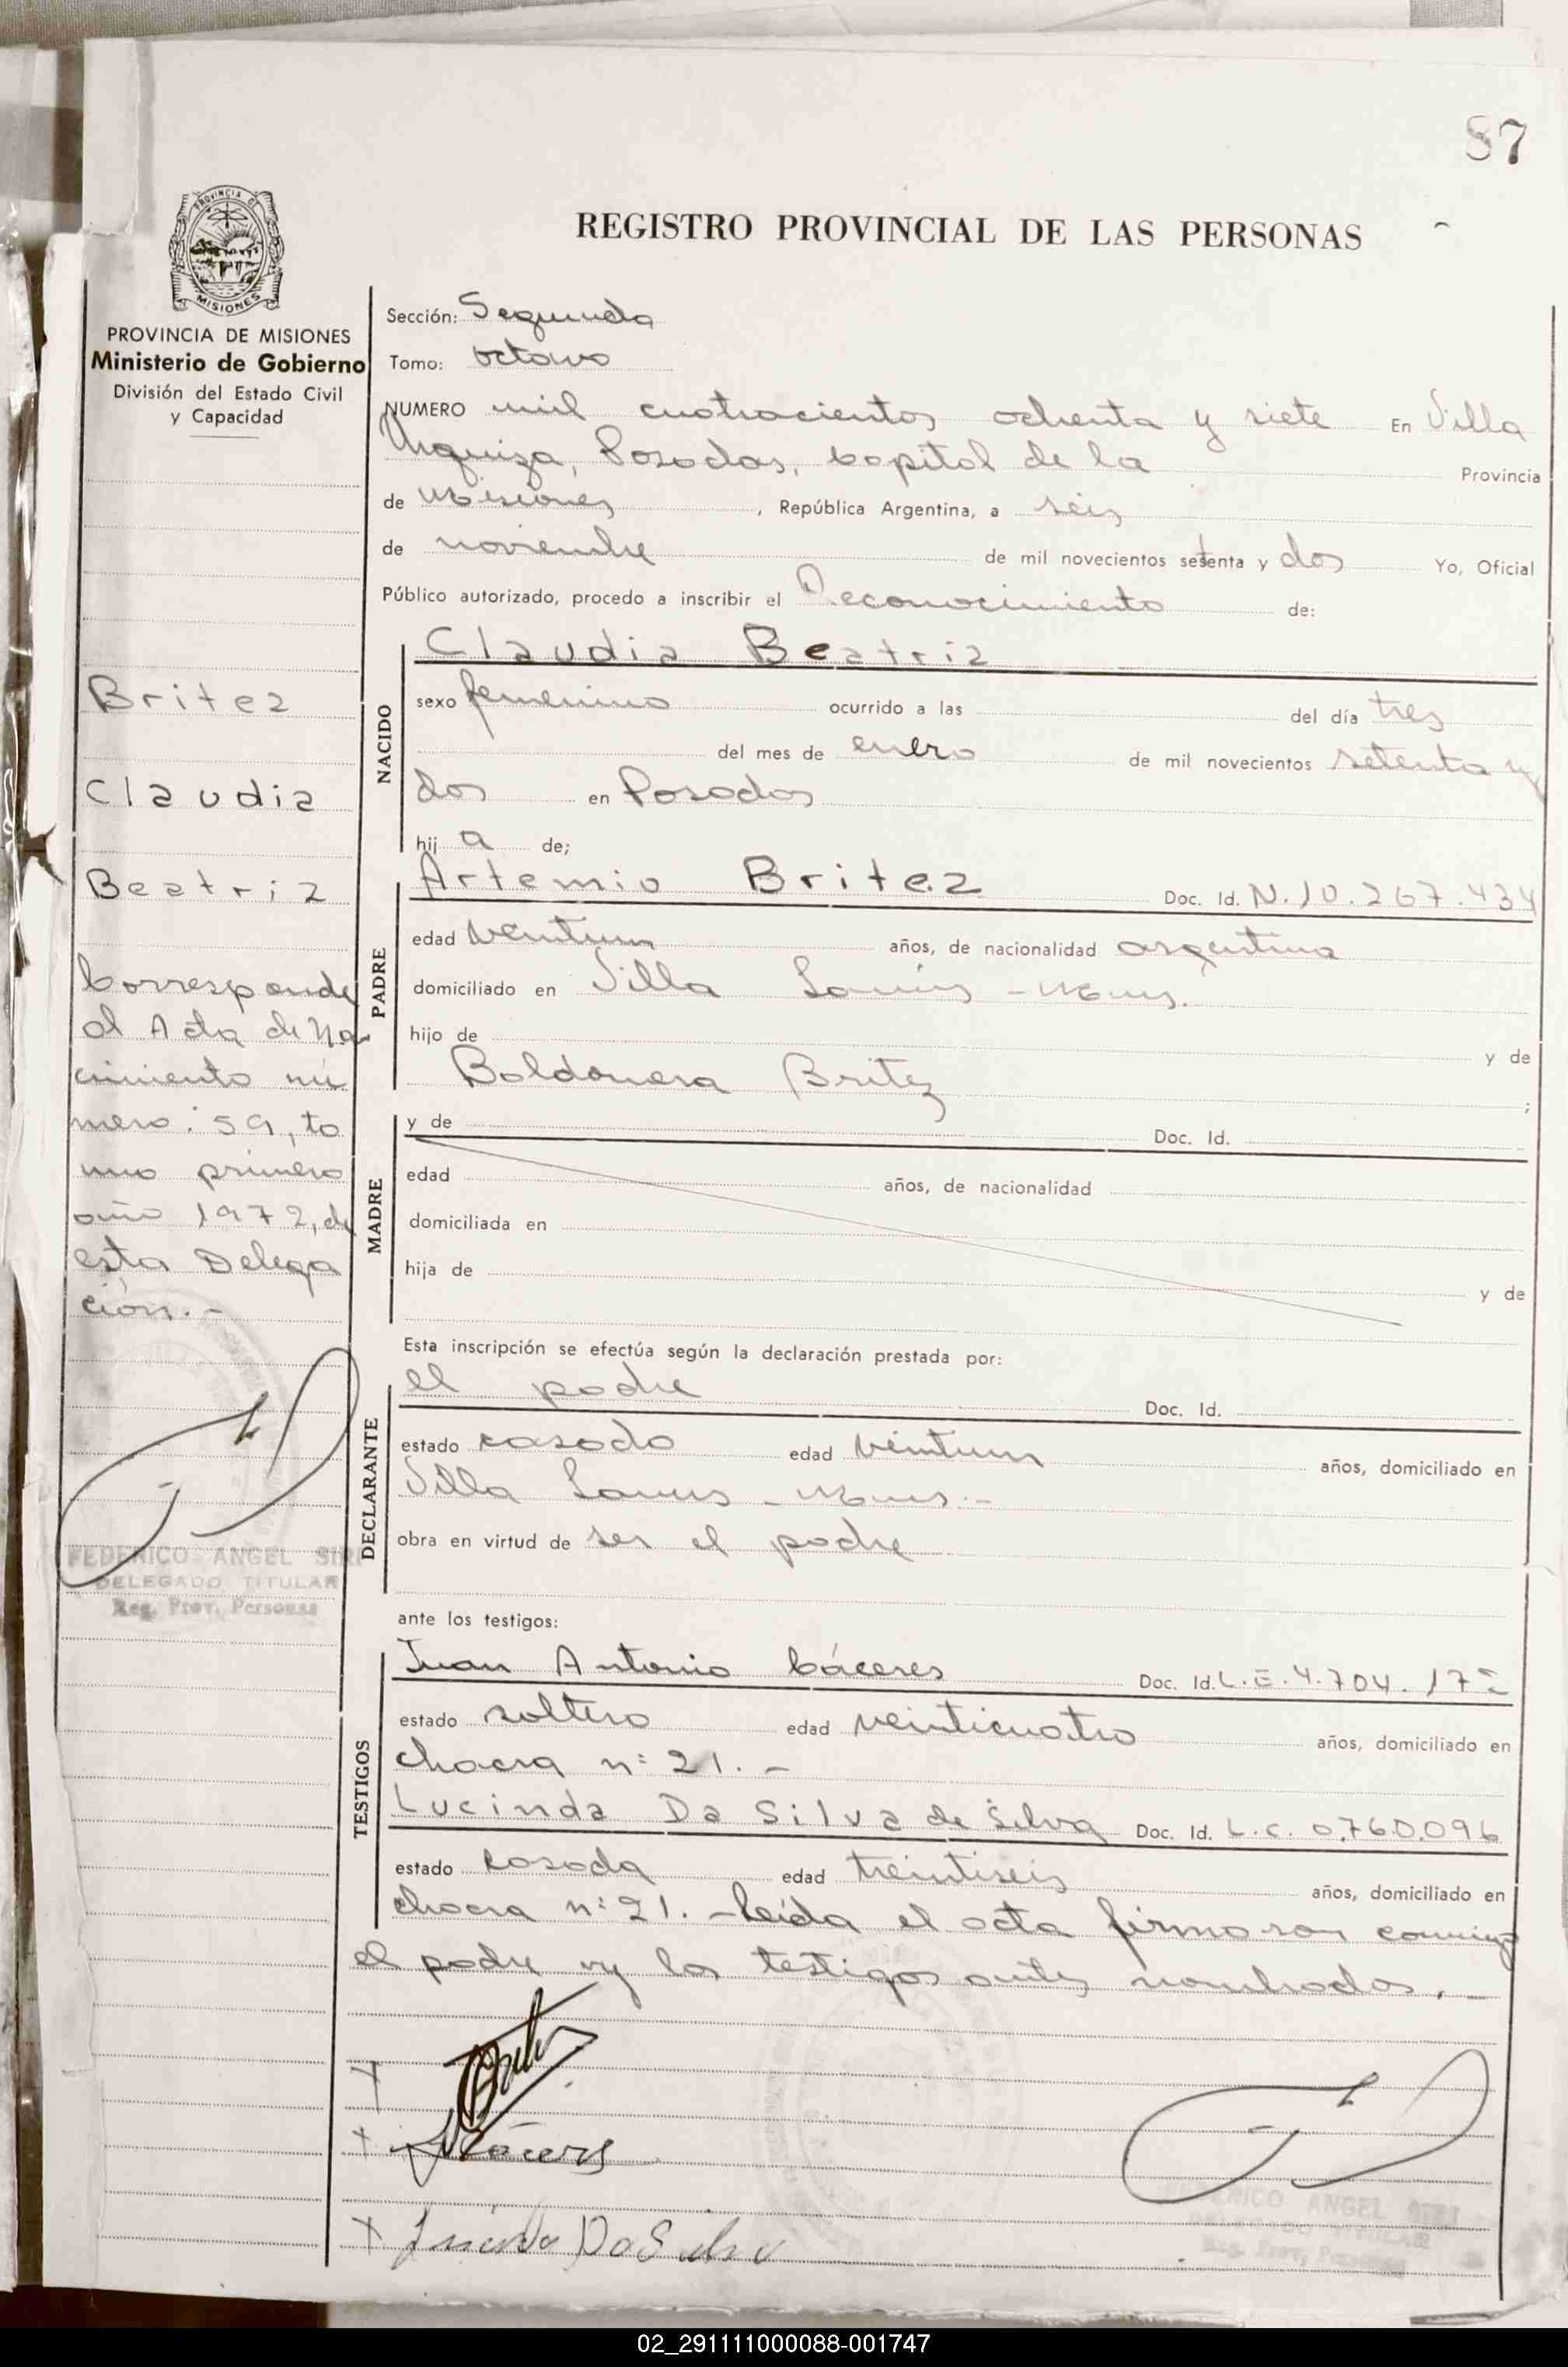 87
PROVINCIA DE
MISIONES
REGISTRO PROVINCIAL DE LAS PERSONAS
PROVINCIA DE MISIONES
Ministerio de Gobierno
División del Estado Civil
y Capacidad
Sección: Segunda
Tomo: octavo
NUMERO mil cuatrocientos ochenta y siete En Villa
Urquiza, Posadas, capital de la Provincia
de Misiones, República Argentina, a seis
de noviembre de mil novecientos setenta y dos Yo, Oficial
Público autorizado, procedo a inscribir el Reconocimiento de:
Britez
Claudia
Beatriz
Corresponde
al Acta de Na
cimiento nú
mero: 59, to
mo primero
año 1972, de
esta Delega
ción.-
FEDERICO ANGEL SIRI
DELEGADO TITULAR
Reg. Prov. Personas
NACIDO
Claudia Beatriz
sexo femenino ocurrido a las del día tres
del mes de enero de mil novecientos setenta y
dos en Posadas
hij a de;
PADRE
Artemio Britez Doc. Id. N.10.267.434
edad veintiun años, de nacionalidad argentina
domiciliado en Villa Lanús - Mnes.
hijo de y de
Baldomera Britez ;
MADRE
y de Doc. Id.
edad años, de nacionalidad
domiciliada en
hija de y de
Esta inscripción se efectúa según la declaración prestada por:
DECLARANTE
el padre Doc. Id.
estado casado edad veintiun años, domiciliado en
Villa Lanus - Mnes.-
obra en virtud de ser el padre
ante los testigos:
TESTIGOS
Juan Antonio Cáceres Doc. Id. L.E. 4.704.17
estado soltero edad veinticuatro años, domiciliado en
chacra n: 21.-
Lucinda Da Silva de Silva Doc. Id. L.C. 0.760.096
estado casada edad treintiseis años, domiciliado en
chacra n: 21.- Leída el acta firmaron conmigo
el padre y los testigos antes nombrados.-
Cáceres
Lucinda Da Silva
FEDERICO ANGEL SIRI
02_291111000088-001747